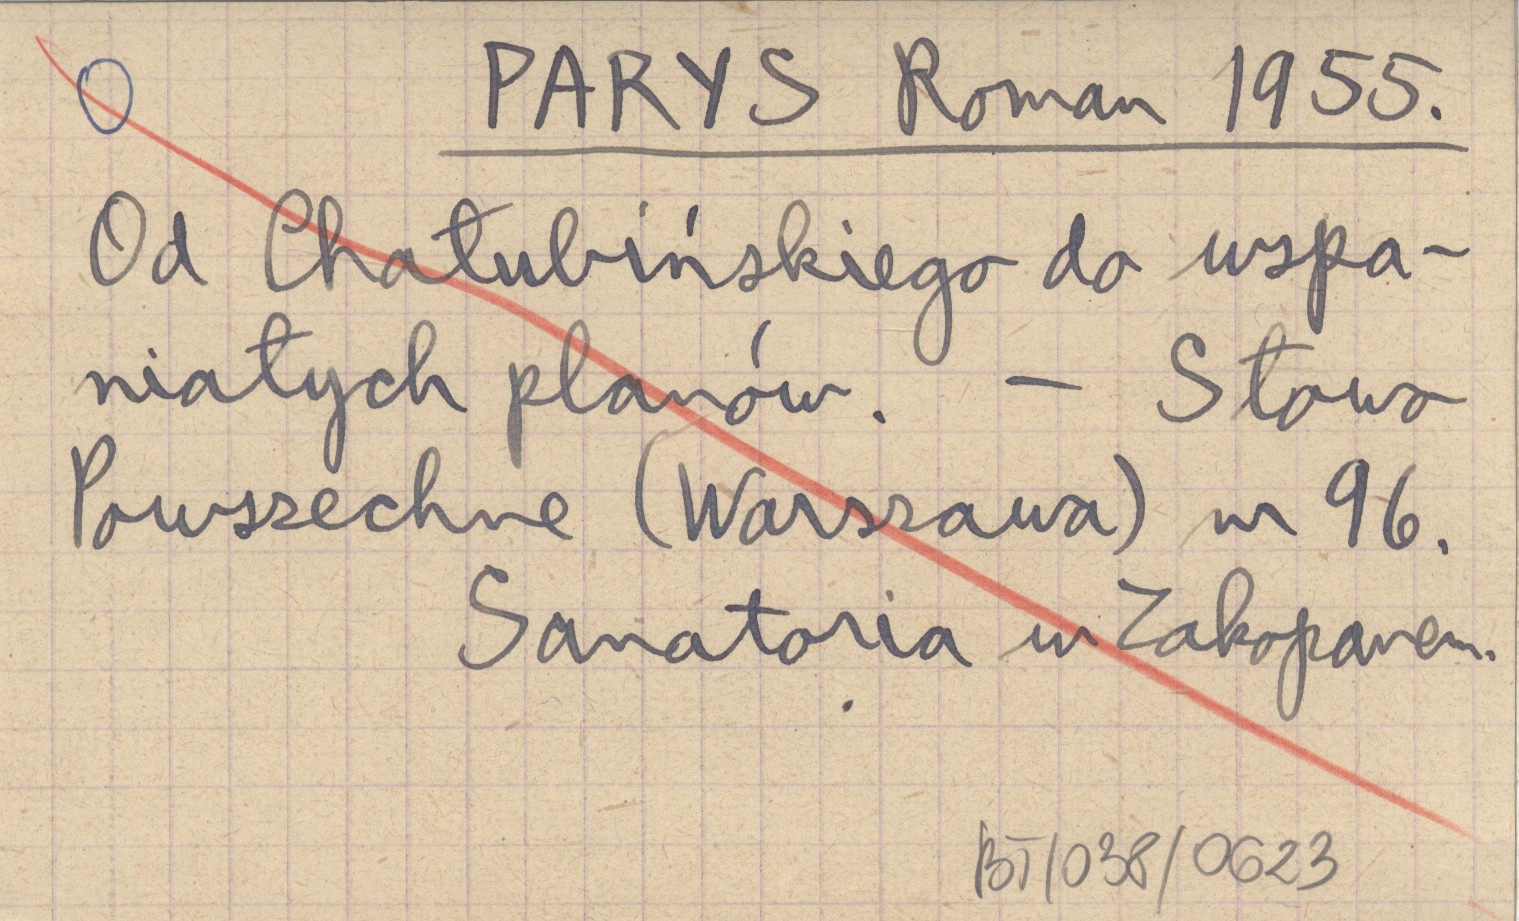 PARYS Roman 1955.
Od Chałubińskiego do wspa-
niałych planów. — Słowo
Powszechne (Warszawa) nr 96.
Sanatoria w Zakopanem.
BT/038/0623